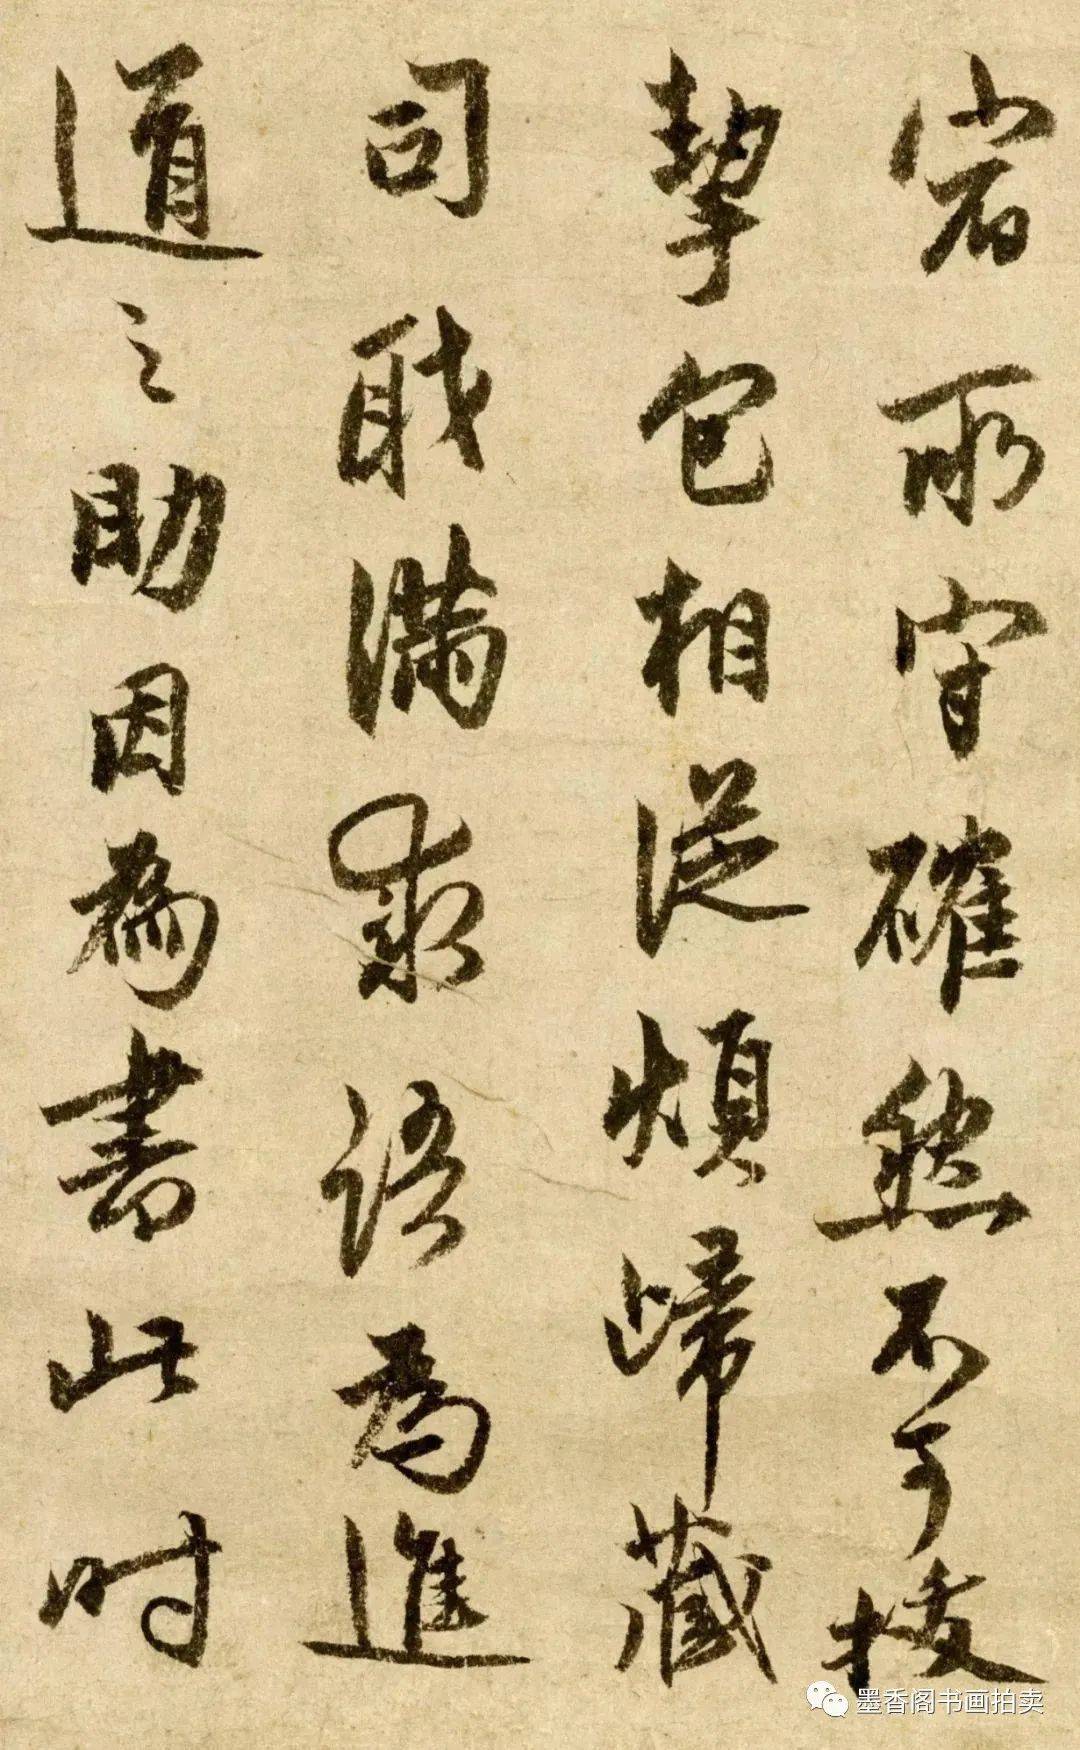 所守確然不可拔
挈包相從煩歸藏
司職滿求語為進
道之助因為書此時
墨香阁书画拍卖